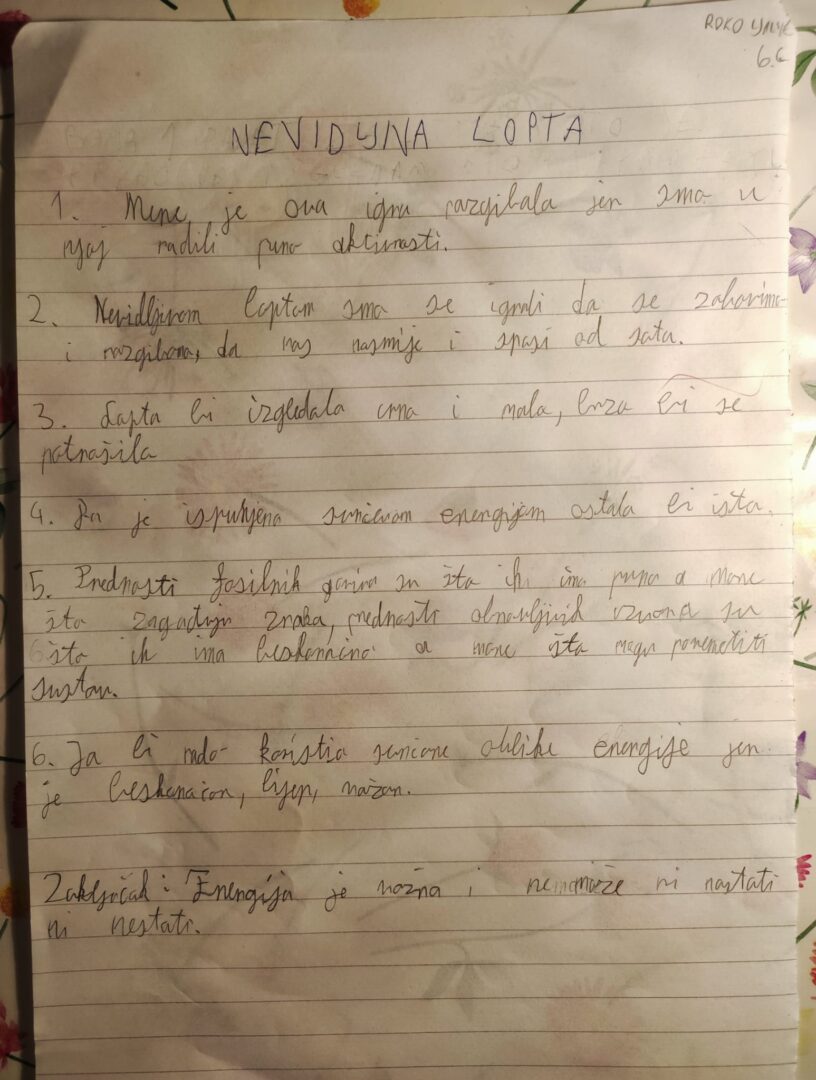 ROKO
6.c
NEVIDLJIVA LOPTA
1. Mene je ova igra razgibala jer smo u
njoj radili puno aktivnosti.
2. Nevidljivom loptom smo se igrali da se zabavimo
i razgibamo, da nas nasmije i spasi od sata.
3. Lopta bi izgledala crna i mala, brzo bi se
potrošila
4. Da je ispunjena sunčevom energijom ostala bi ista.
5. Prednosti fosilnih goriva su što ih ima puno a mane
što zagađuju zraka, prednosti obnovljivih izvora su
što ih ima beskonačno a mane što mogu poremetiti
sustav.
6. Ja bi rado koristio sunčane oblike energije jer
je beskonačan, lijep, važan.
Zaključak: Energija je važna i nemože ni nastati
ni nestati.